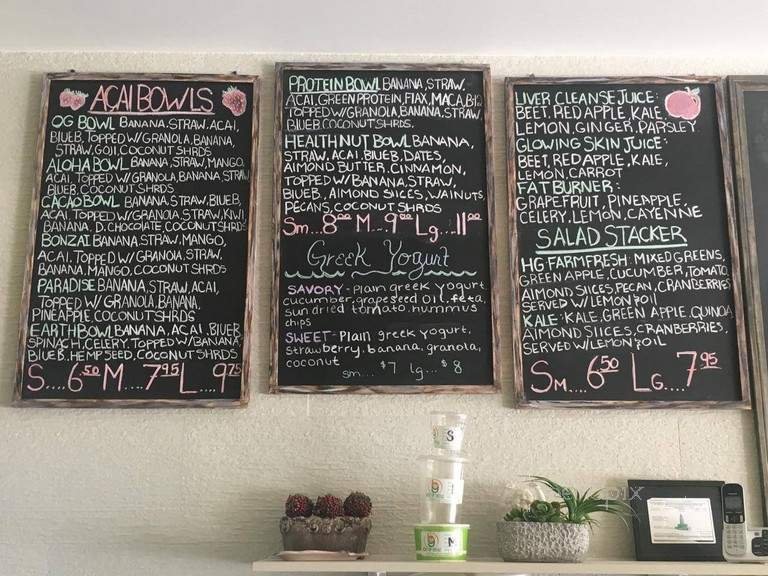 ACAI BOWLS
OG BOWL BANANA, STRAW, ACAI,
BLUEB, TOPPED W/GRANOLA, BANANA,
STRAW, GOJI, COCONUT SHRDS
ALOHA BOWL BANANA, STRAW, MANGO,
ACAI, TOPPED W/GRANOLA, BANANA, STRAW
BLUEB, COCONUT SHRDS
CACAO BOWL BANANA, STRAW, BLUEB,
ACAI, TOPPED W/GRANOLA, STRAW, KIWI,
BANANA, D. CHOCOLATE COCONUT SHRDS
BONZAI BANANA, STRAW, MANGO,
ACAI, TOPPED W/GRANOLA, STRAW,
BANANA, MANGO, COCONUT SHRDS
PARADISE BANANA, STRAW, ACAI,
TOPPED W/ GRANOLA, BANANA,
PINEAPPLE, COCONUT SHRDS
EARTH BOWL BANANA, ACAI, BLUEB,
SPINACH, CELERY, TOPPED W/BANANA,
BLUEB, HEMP SEED, COCONUT SHRDS
S....6.50 M...7.95 L...9.75
PROTEIN BOWL BANANA, STRAW,
ACAI, GREEN PROTEIN, FLAX, MACA,
TOPPED W/GRANOLA, BANANA, STRAW
BLUEB, COCONUT SHRDS.
HEALTH NUT BOWL BANANA,
STRAW, ACAI, BLUEB, DATES,
ALMOND BUTTER, CINNAMON,
TOPPED W/ BANANA, STRAW,
BLUEB, ALMOND SLICES, WALNUTS,
PECANS, COCONUT SHRDS
Sm...8.00 M...9.00 Lg...11.00
Greek Yogurt
SAVORY - Plain greek yogurt
cucumber, grapeseed oil, feta,
sun dried tomato, hummus
chips
SWEET - Plain greek yogurt,
strawberry, banana, granola,
coconut
sm... $7 lg... $8
LIVER CLEANSE JUICE:
BEET, RED APPLE, KALE,
LEMON, GINGER, PARSLEY
GLOWING SKIN JUICE:
BEET, RED APPLE, KALE,
LEMON, CARROT
FAT BURNER:
GRAPEFRUIT, PINEAPPLE,
CELERY, LEMON, CAYENNE
SALAD STACKER
HG FARM FRESH: MIXED GREENS,
GREEN APPLE, CUCUMBER, TOMATO,
ALMOND SLICES, PECAN, CRANBERRIES
SERVED W/LEMON OIL
KALE: KALE, GREEN APPLE, QUINOA,
ALMOND SLICES, CRANBERRIES,
SERVED W/LEMON OIL
Sm...6.50 Lg...7.95